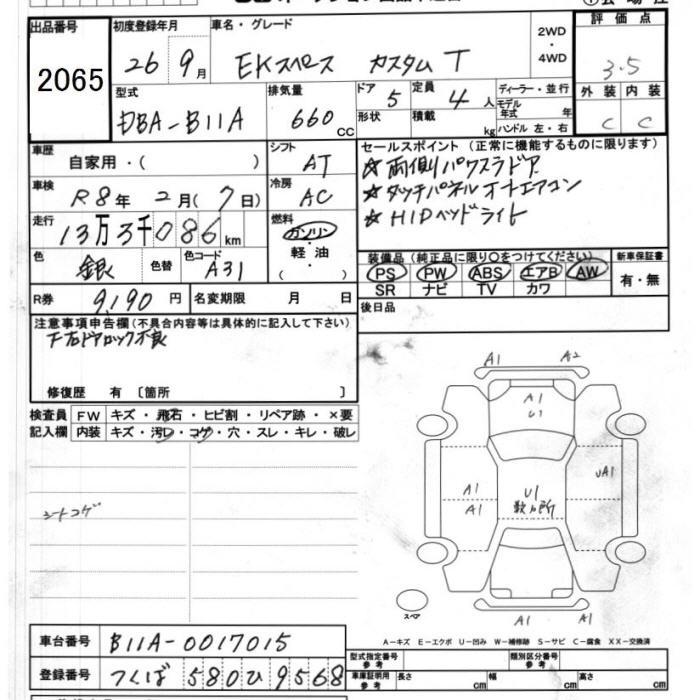 出品番号
2065
初度登録年月
26 9月
車名・グレード
EKスペース カスタム T
2WD
・
4WD
評価点
3.5
外装 内装
C C
型式
DBA-B11A
排気量
660 CC
ドア 5
形状
定員 4 人
積載 kg
ディーラー・並行
モデル年式 年
ハンドル 左・右
車歴
自家用・( )
シフト
AT
セールスポイント (正常に機能するものに限ります)
☆両側パワスラドア
☆タッチパネルオートエアコン
☆HIDヘッドライト
車検
R8年 2月(7日)
冷房
AC
走行
13万3千086km
燃料
ガソリン
・
軽油
・
( )
色
銀
色替
色コード
A31
装備品 (純正品に限り○をつけてください)
PS PW ABS エアB AW
SR ナビ TV カワ
新車保証書
有・無
R券 9,190 円
名変期限 月 日
後日品
注意事項申告欄(不具合内容等は具体的に記入して下さい)
ドアロック不良
修復歴 有 〔箇所 〕
検査員
記入欄
FW キズ・飛石・ヒビ割・リペア跡・×要
内装 キズ・汚レ・コゲ・穴・スレ・キレ・破レ
シートコゲ
A1 A2
A1
U1
A1
A1
U1
数ヵ所
UA1
A1 A1
スペア
A-キズ E-エクボ U-凹み W-補修跡 S-サビ C-腐食 XX-交換済
車台番号 B11A-0017015
登録番号 つくば 580 ひ 9568
型式指定番号
参考
類別区分番号
参考
車庫証明用
参考
長さ cm 幅 cm 高さ cm